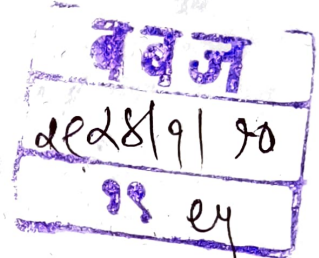 बबज
२९२४|१| १०
१९ ९५